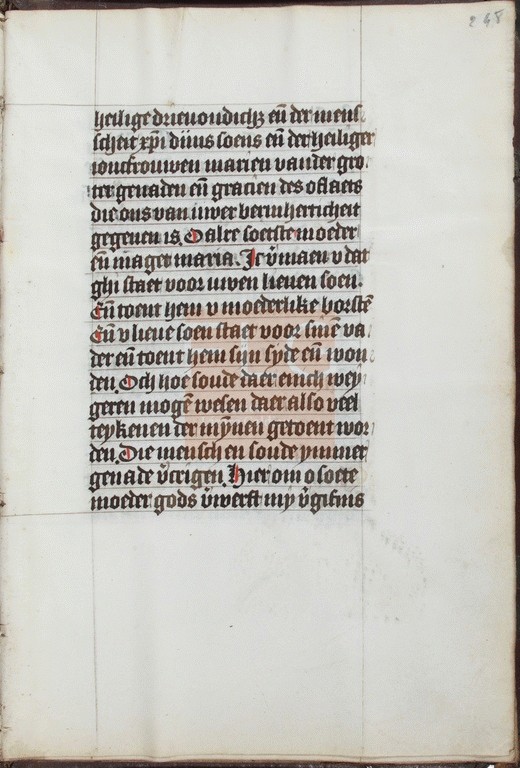 248
heilige drieuondich₃ en̄ der mens
scheit xp̄i dijns soens en̄ der heiliger
ioncfrouwen marien van der gro
ter genaden en̄ gracien des oflaets
die ons van uwer bermherticheit
gegeuen is. O alre soetste moeder
en̄ maget maria. Ic v̄maen v dat
ghi staet voor uwen lieuen soen.
En̄ toent hem v moederlike borstē
En̄ v lieue soen staet voor sinē va
der en̄ toent hem sijn syde en̄ won
den. Och hoe soude daer enich wey
geren mogē wesen daer also veel
teykenen der mȳnen getoent wor
den. Die mensch en soude ymmer
genade v̄crigen. Hier om o soete
moeder gods v̄werft my v̄gifnis